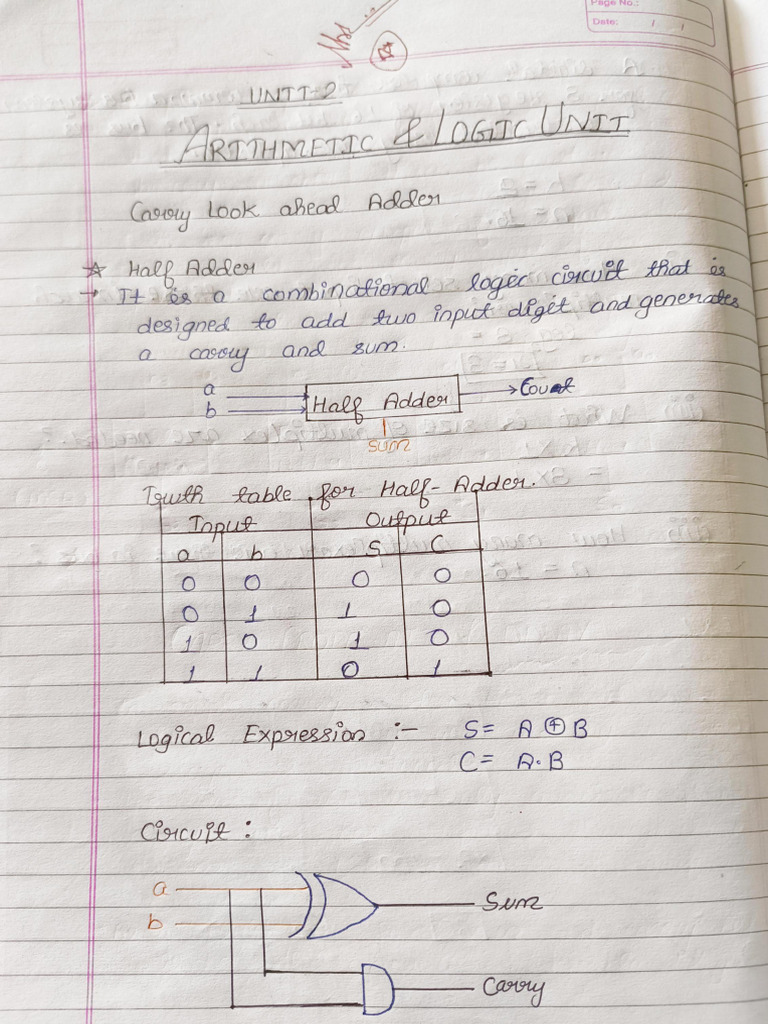 Page No.:
Date: / /
UNIT-2
ARITHMETIC & LOGIC UNIT
Carry Look ahead Adder
☆ Half Adder
→ It is a combinational logic circuit that is
designed to add two input digit and generates
a carry and sum.
a
b
Half Adder
Cout
sum
Truth table for Half-Adder.
Input Output
a b S C
0 0 0 0
0 1 1 0
1 0 1 0
1 1 0 1
Logical Expression :- S = A ⊕ B
C = A·B
Circuit :
a
b
Sum
Carry